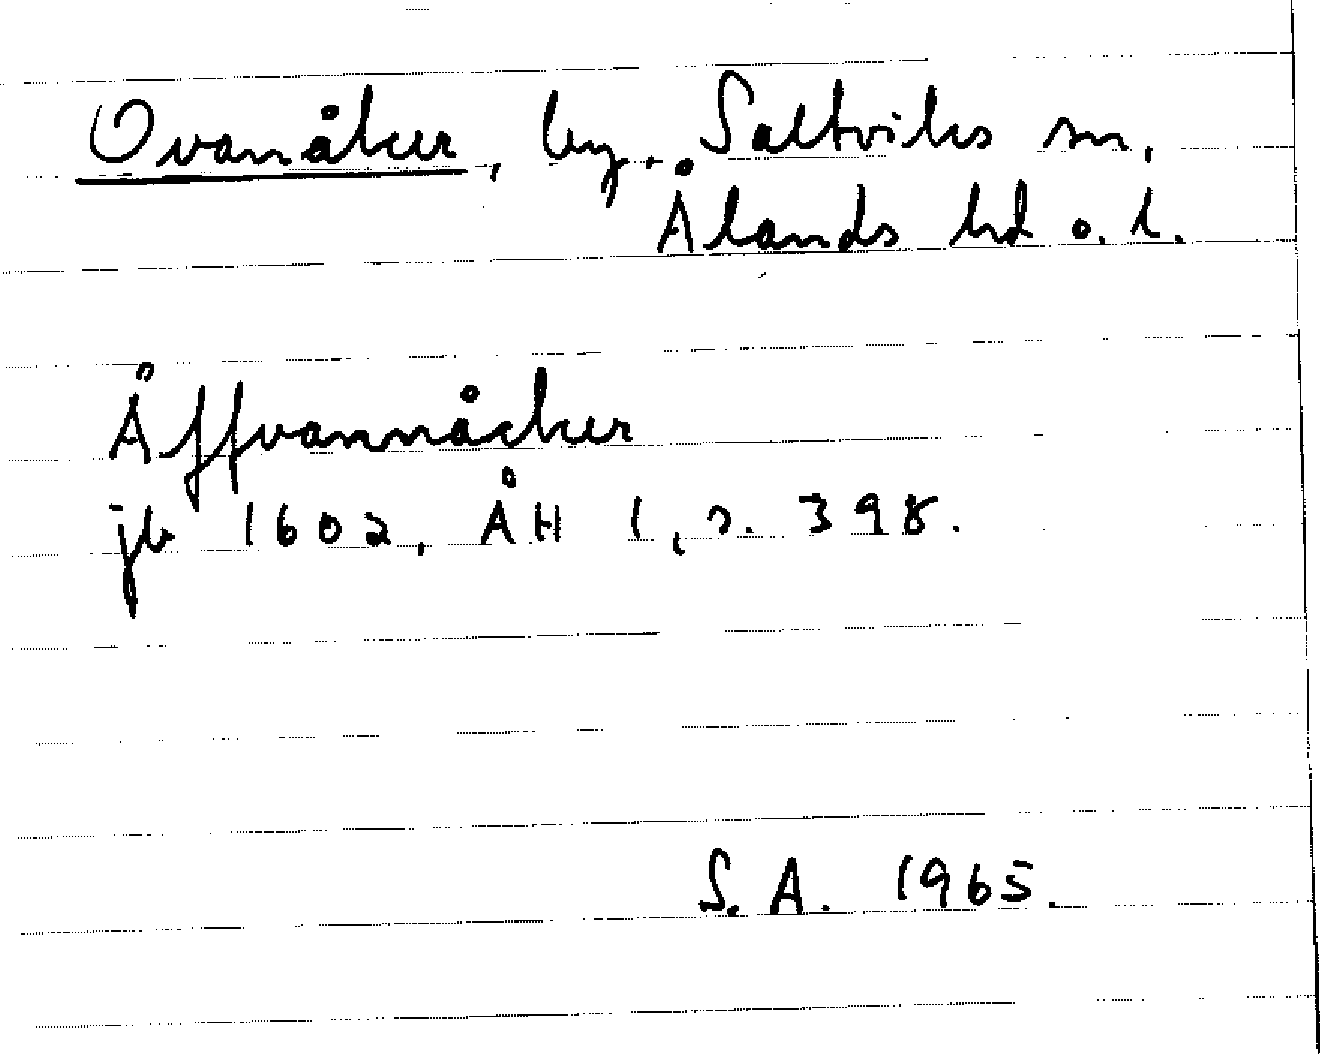 Ovanåker, by. Saltviks sn,
Ålands hd o. l.
Åffvannåcker
jb 1602, ÅH 1, s. 398.
S. A. 1965.